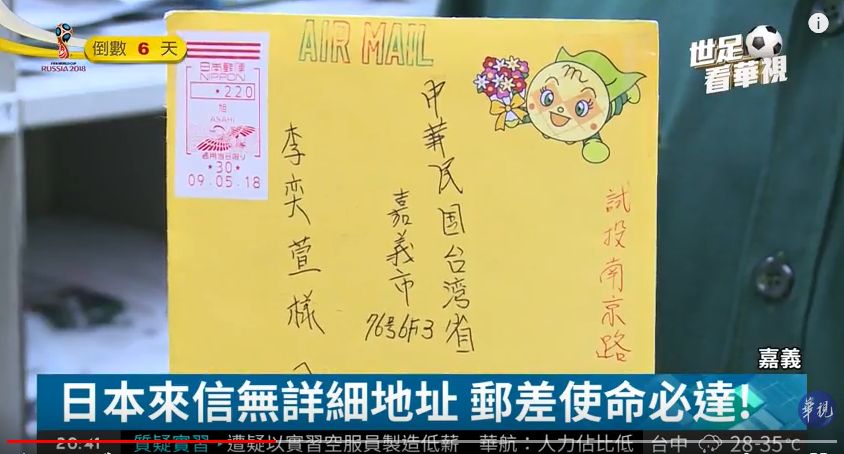 倒數 6 天
FIFA WORLD CUP
RUSSIA 2018
AIR MAIL
世足
看華視
日本郵便
NIPPON
*220
旭
ASAHI
適用当日限り
*30*
09.05.18
中華民国台湾省
嘉義市
76号6F3
李奕萱様
試投南京路
嘉義
日本來信無詳細地址 郵差使命必達!
華視
20:41
質疑實習,遭疑以實習空服員製造低薪 華航:人力佔比低
台中 28-35℃